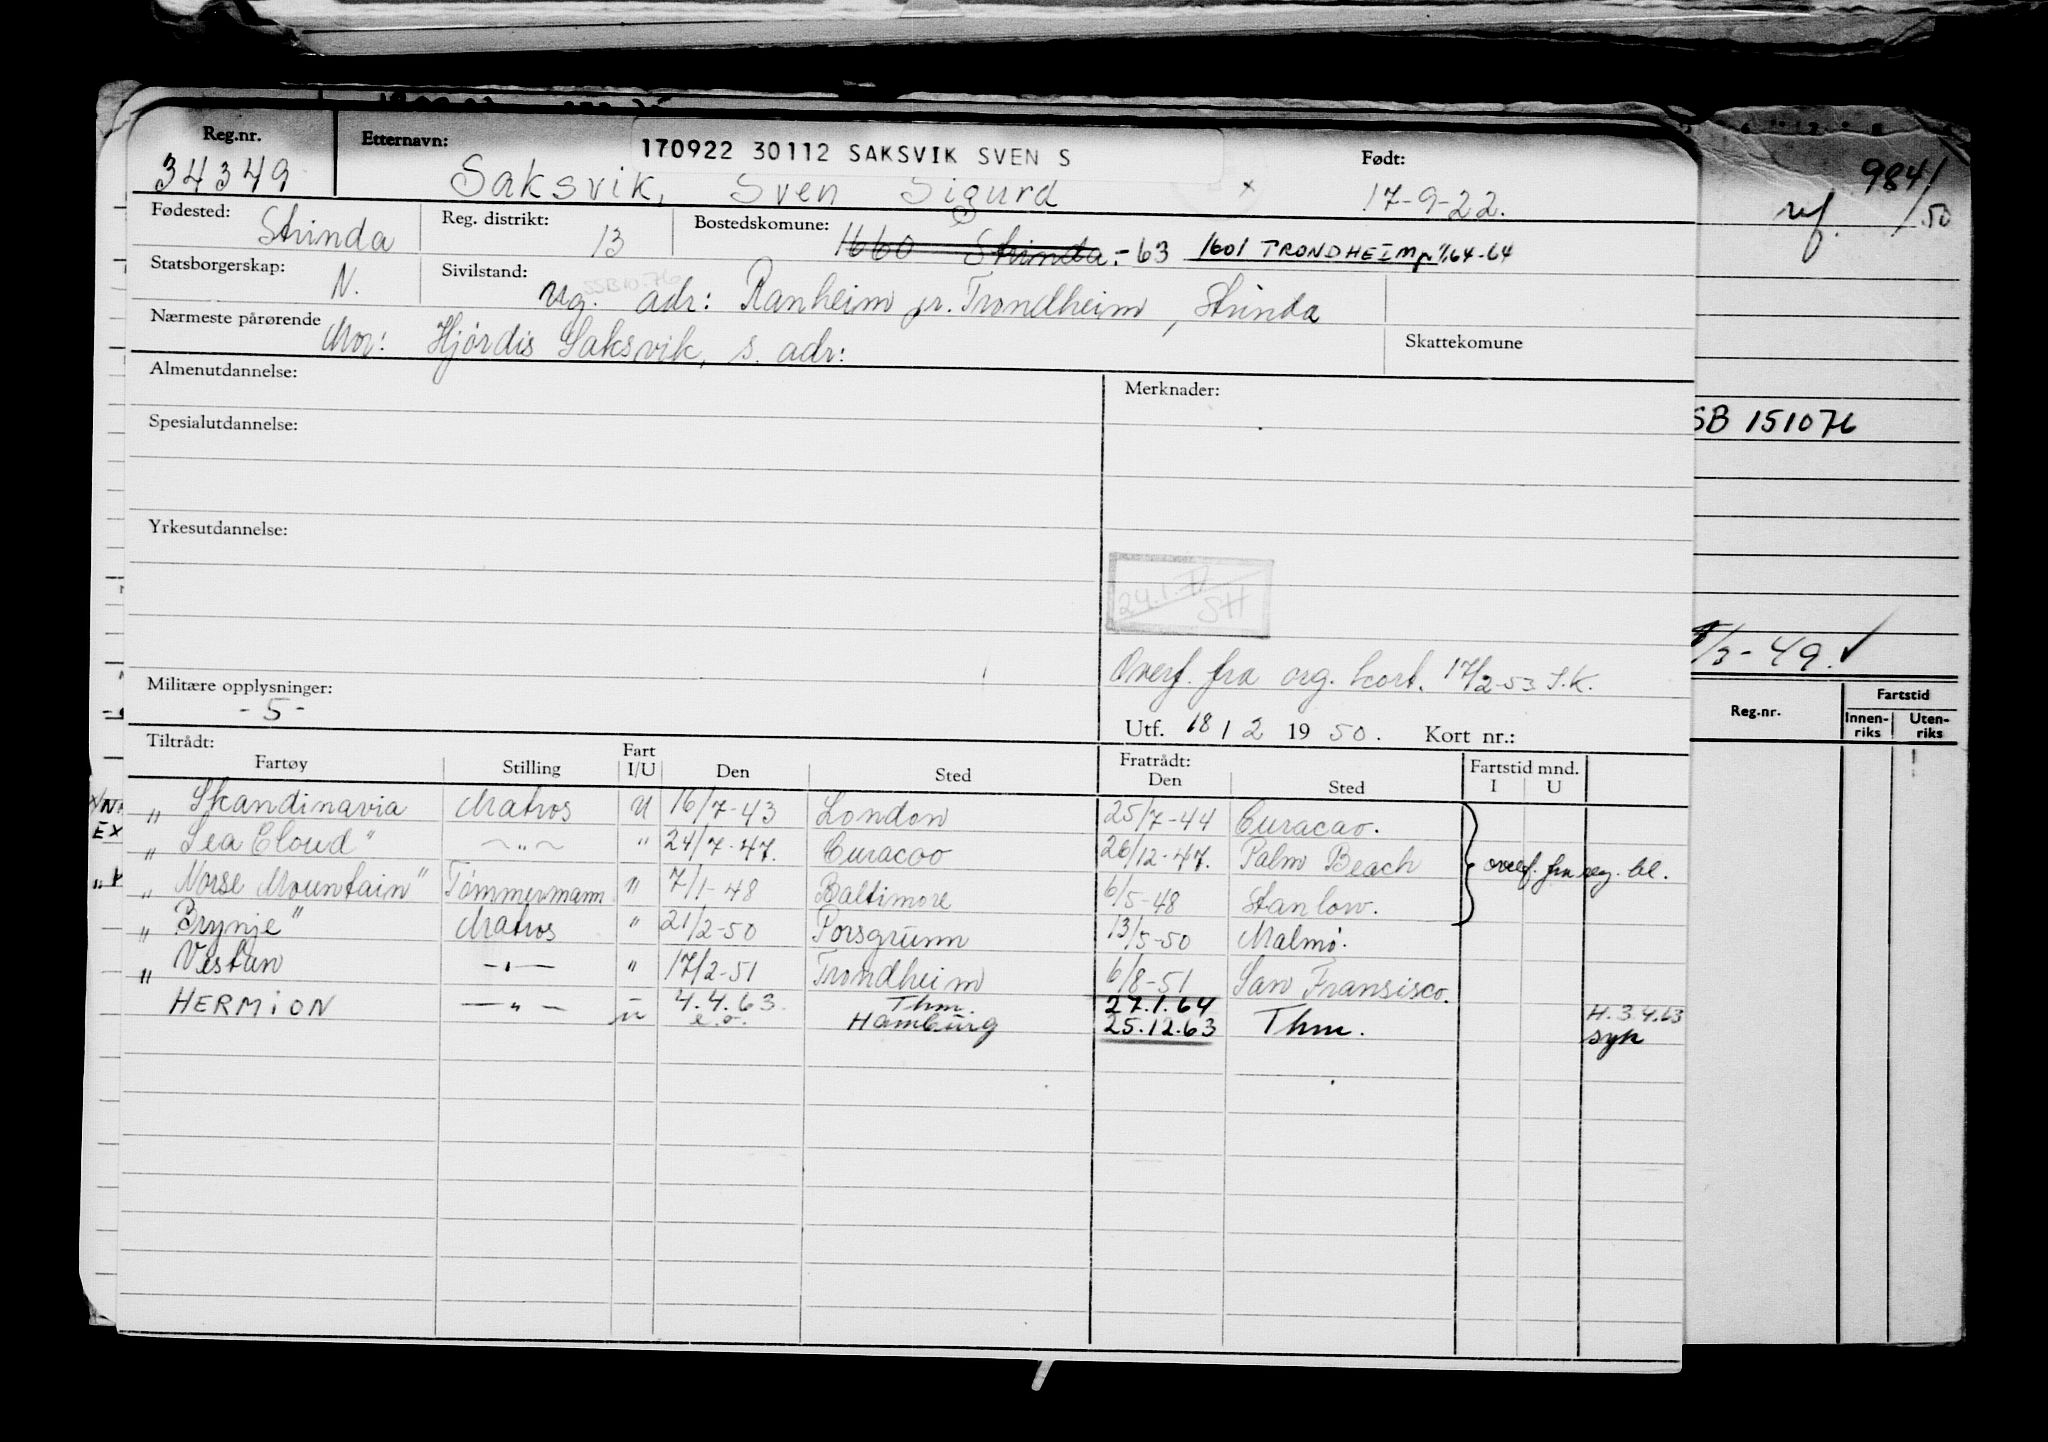 Reg.nr. Etternavn: 170922 30112 SAKSVIK SVEN S Født:
34349 Saksvik, Sven Sigurd x 17-9-22.
Fødested: Strinda Reg. distrikt: 13 Bostedskomune: 1660 Strinda.-63 1601 TRONDHEIM 64-64
Statsborgerskap: N. Sivilstand: Ug. adr: Ranheim pr. Trondheim, Strinda
Nærmeste pårørende Mor: Hjørdis Saksvik, s. adr: Skattekomune
Almenutdannelse: Merknader:
Spesialutdannelse:
Yrkesutdannelse:
24.1. SH
Overf. fra org. kort. 17/2-53 S.K.
Militære opplysninger:
- 5 -
Utf. 18 / 2 19 50. Kort nr.:
Tiltrådt: Fratrådt: Fartstid mnd.
Fartøy Stilling Fart I/U Den Sted Den Sted I U
" Skandinavia Matros U 16/7-43 London 25/7-44 Curacao.
" Sea Cloud" ~"~ " 24/7-47. Curacao 26/12-47. Palm Beach overf. fra reg. bl.
" Norse Mountain" Tømmermann " 7/1-48 Baltimore 6/5-48 Stanlow.
" Brynje" Matros " 21/2-50 Porsgrunn 13/5-50 Malmø.
" Vestan —"— " 17/2-51 Trondheim 6/8-51 San Fransisco.
HERMION —"— – 4.4.63. Thm. 27.1.64 H. 3.4.63
u e.o. Hamburg 25.12.63 Thm. syk
984/
ref. /50
SB 151076
/3-49.✓
Reg.nr. Fartstid
Innen-riks Uten-riks
EX